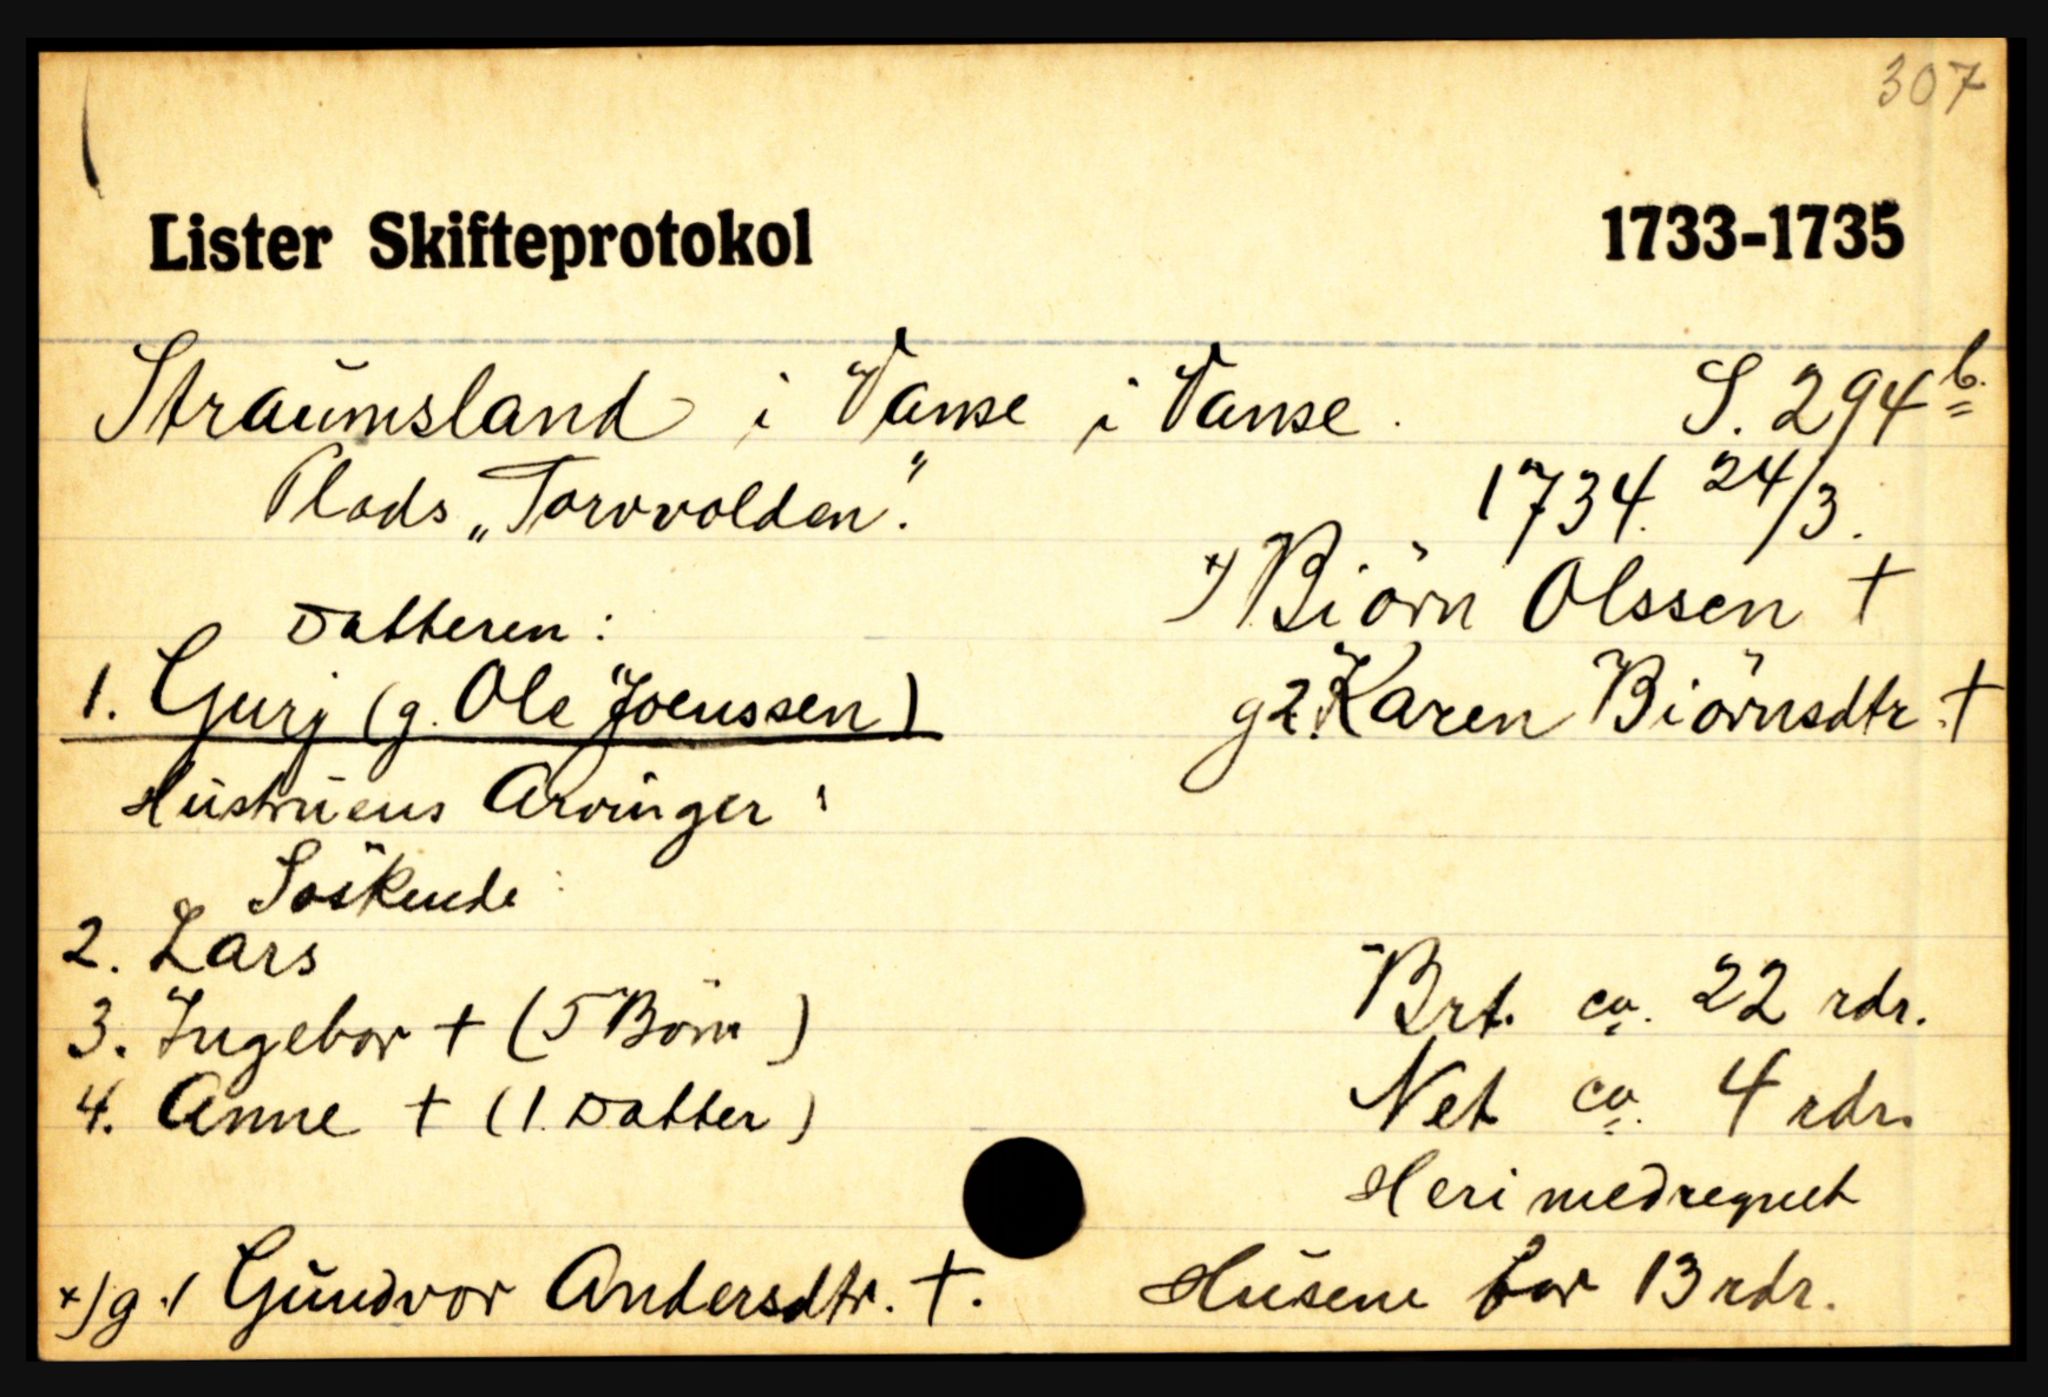 307
Lister Skifteprotokol 1733-1735
Straumsland i Vanse i Vanse. S. 294 b.
Plads „Torvvolden". 1734. 24/3.
x) Biörn Olssen †
Datteren:
1. Gurj (g. Ole Joenssen) g 2. Karen Biörnsdtr. †
Hustruens Arvinger:
Söskende:
2. Lars
3. Ingebor † (5 Börn) Brt. ca. 22 rdr.
4. Anne † (1 Datter) Net ca. 4 rdr.
Heri medregnet
x) g. 1 Gundvor Andersdtr. †. Husene for 13 rdr.